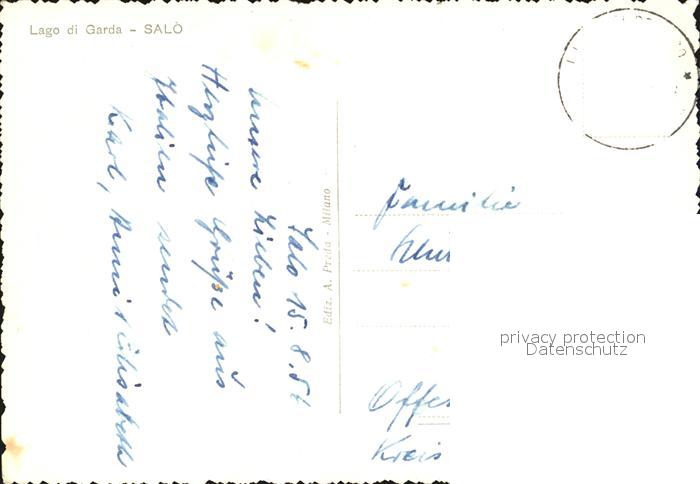 Lago di Garda - SALÒ
Salo 15. 8. 56
Unsere Lieben!
Herzliche Grüße aus
Italien sendet
Karl, Anni + Elisabeth
Ediz. A. Preda - Milano
Familie
Kreis
privacy protection
Datenschutz